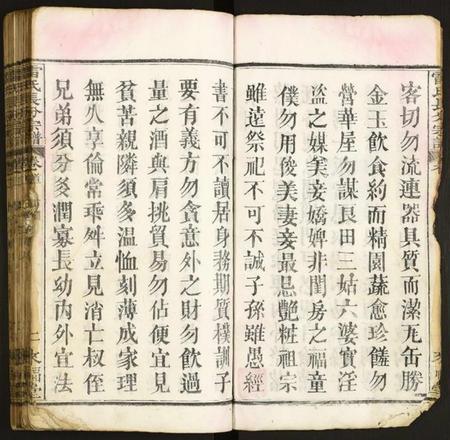 客切勿流連器具質而潔瓦缶勝
金玉飲食約而精園蔬愈珍饈勿
營華屋勿謀良田三姑六婆實淫
盜之媒美妾嬌婢非閨房之福童
僕勿用俊美妻妾最忌艷粧祖宗
雖遠祭祀不可不誠子孫雖愚經
書不可不讀居身務期質樸訓子
要有義方勿貪意外之財勿飲過
量之酒與肩挑貿易勿佔便宜見
貧苦親隣須多溫恤刻薄成家理
無久享倫常乖舛立見消亡叔侄
兄弟須分多潤寡長幼內外宜法
雷氏長分宗譜